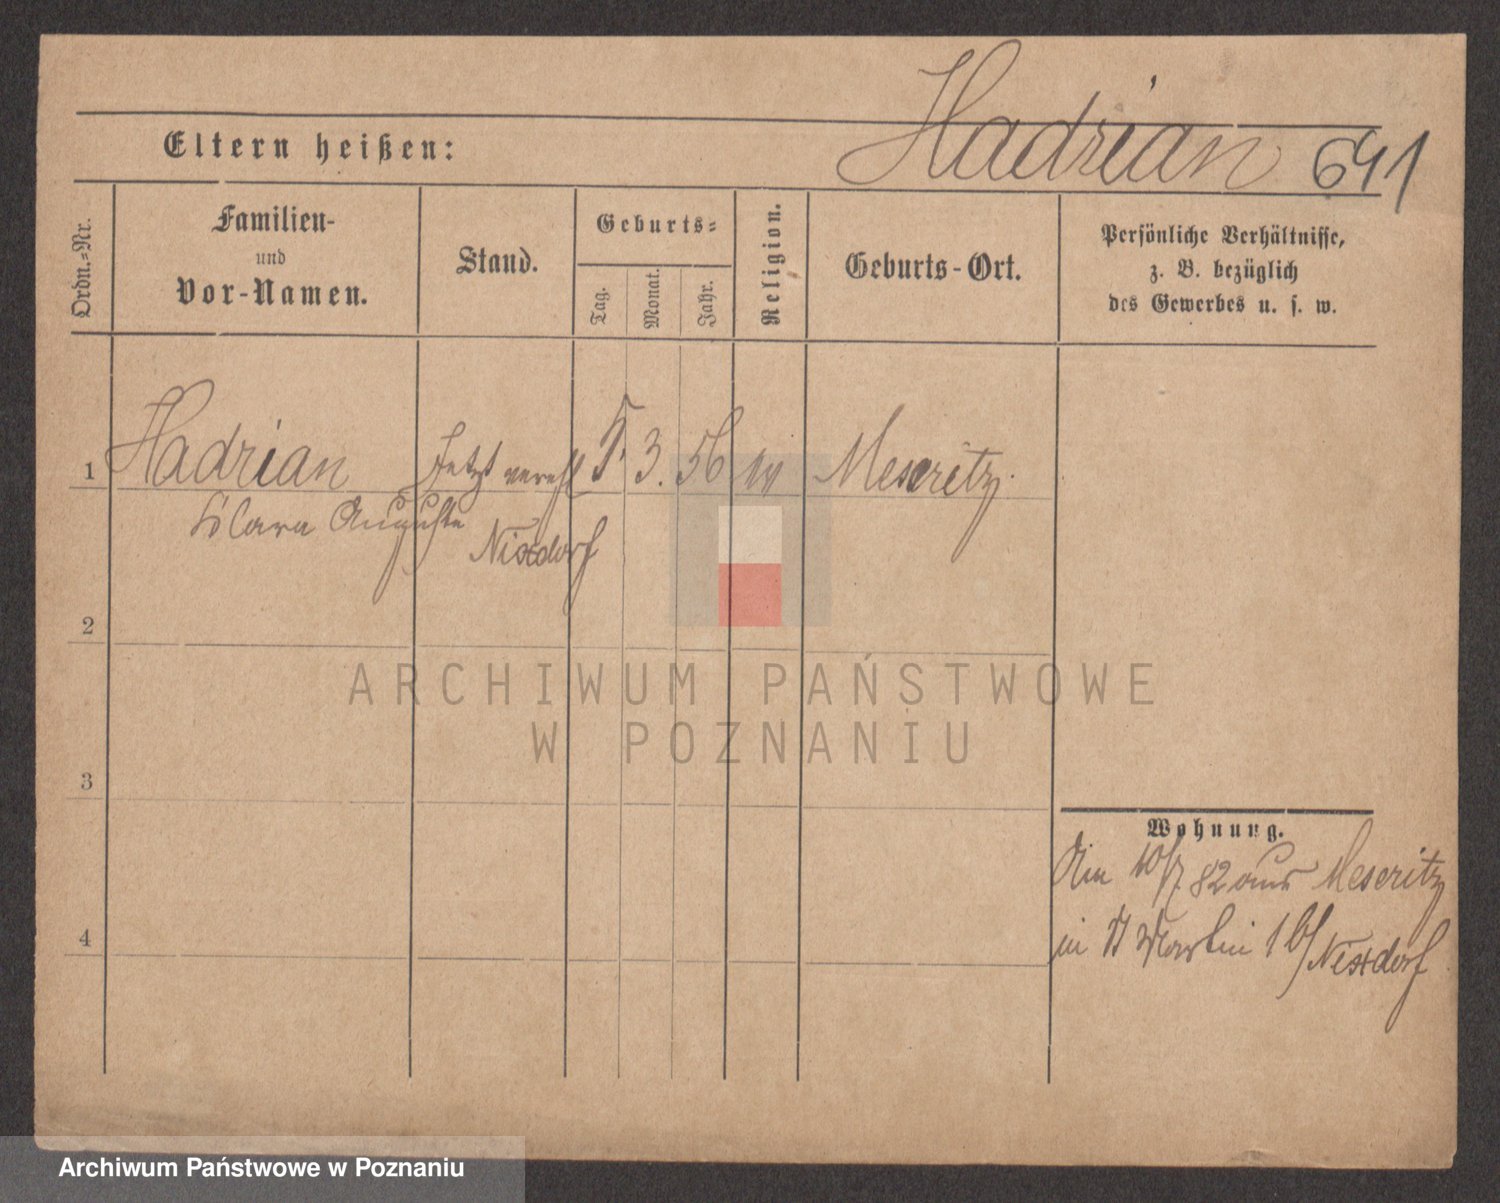 Hadrian 641
Eltern heißen:
Ordn.-Nr.
Familien-
und
Vor-Namen.
Stand.
Geburts-
Tag.
Monat.
Jahr.
Religion.
Geburts-Ort.
Persönliche Verhältnisse,
z. B. bezüglich
des Gewerbes u. s. w.
1 Hadrian Jetzt verehl 5. 3. 56 Meseritz.
Clara Auguste
Nixdorf
2
3
4
Wohnung.
Am 10/7 82 aus Meseritz
in St Martin 1 b/ Nixdorf
ARCHIWUM PAŃSTWOWE
W POZNANIU
Archiwum Państwowe w Poznaniu